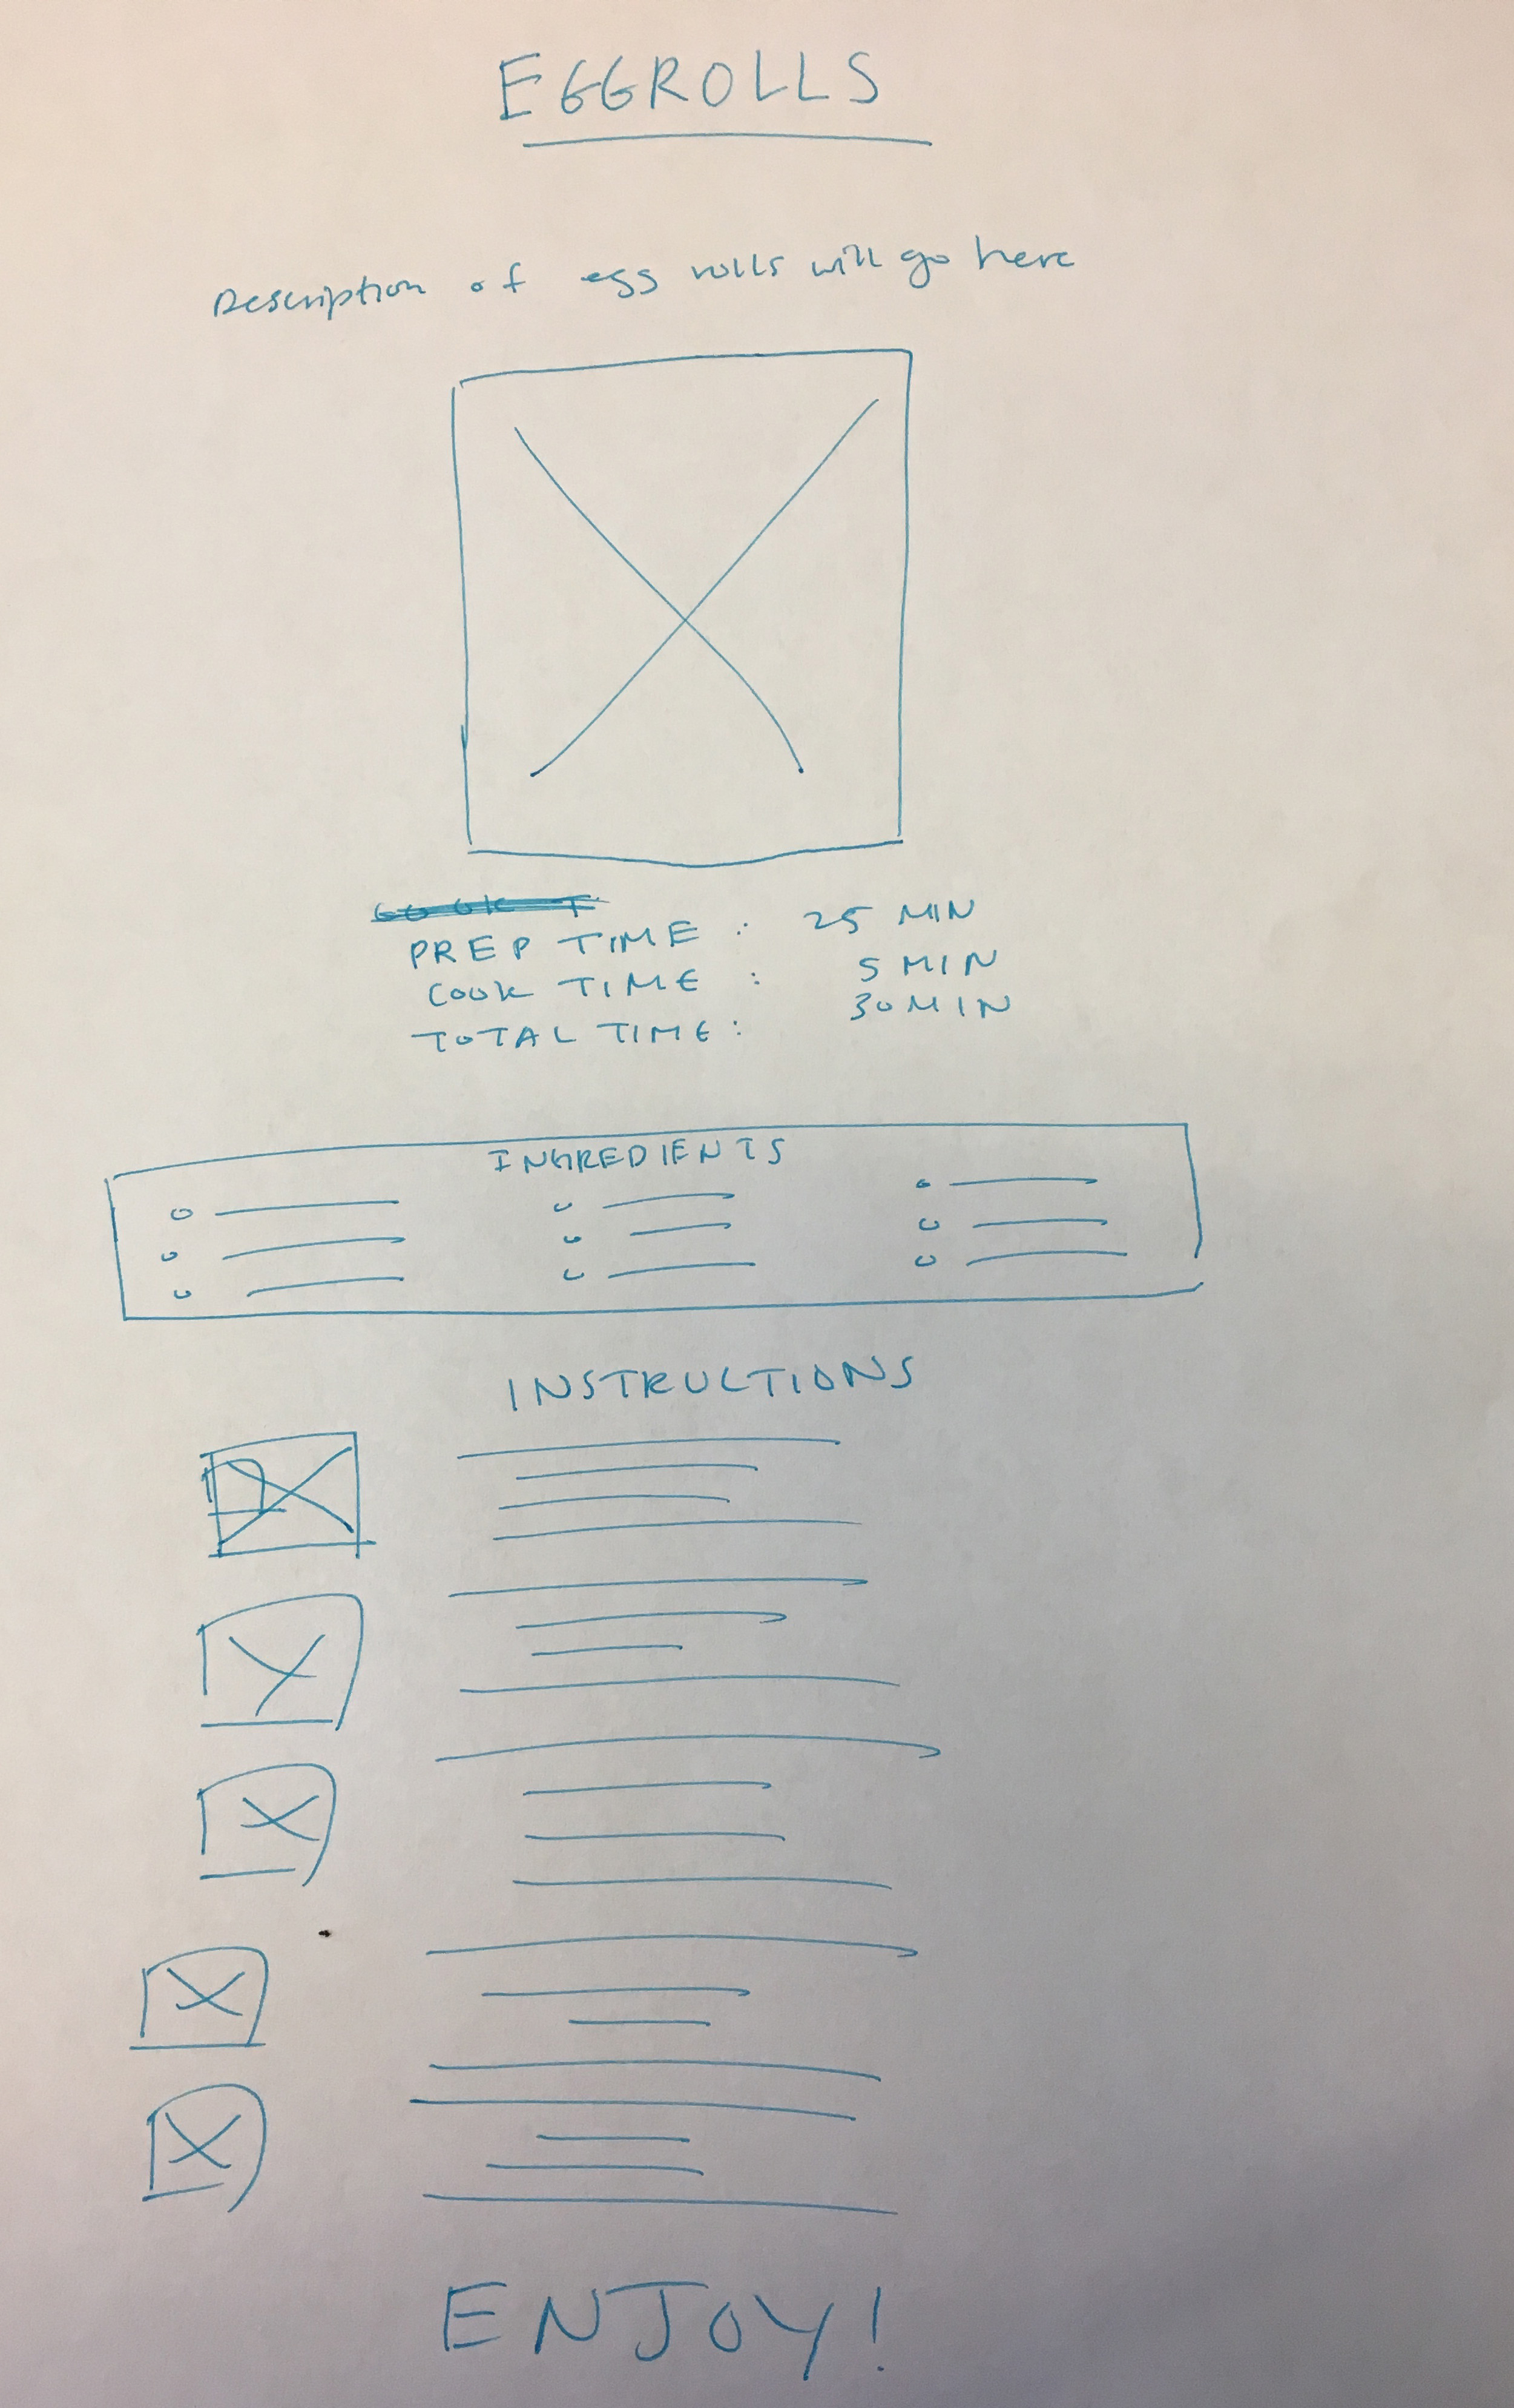 EGGROLLS
Description of egg rolls will go here
PREP TIME : 25 MIN
COOK TIME : 5 MIN
TOTAL TIME : 30 MIN
INGREDIENTS
INSTRUCTIONS
ENJOY!